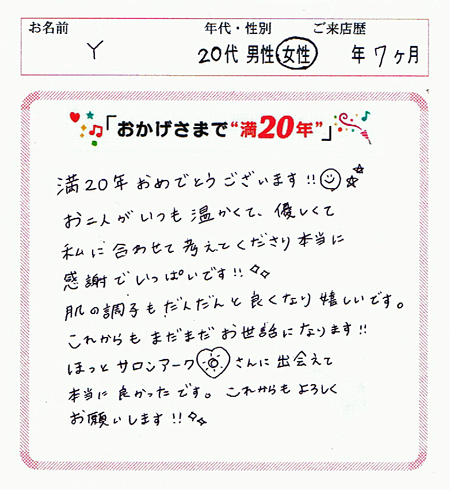 お名前 年代・性別 ご来店歴
Y 20代 男性・女性 年 7ヶ月
「おかげさまで“満20年”」
満20年 おめでとうございます!!
お二人がいつも温かくて、優しくて
私に合わせて考えてくださり本当に
感謝でいっぱいです!!
肌の調子もだんだんと良くなり嬉しいです。
これからもまだまだお世話になります!!
ほっとサロンアークさんに出会えて
本当に良かったです。これからもよろしく
お願いします!!